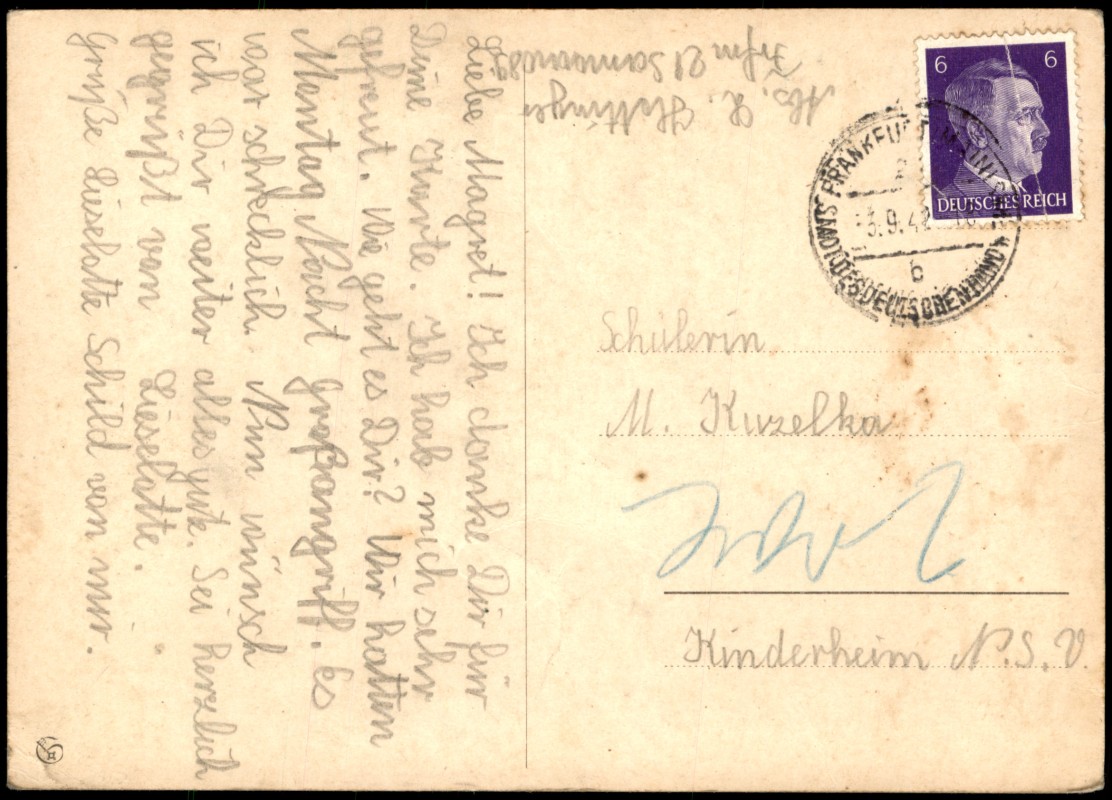 Liebe Magret! Ich danke Dir für
Deine Karte. Ich hab mich sehr
gefreut. Wie geht es Dir? Wir hatten
Mantag Nacht großangriff. Es
war schrecklich. Nun wünsch
ich Dir weiter alles gute. Sei herzlich
gegrüßt von Lieselotte.
Grüße Lieselotte Schild von mir.
Abs. L.
Ffm 21
6 6
DEUTSCHES REICH
FRANKFURT
9.42
b
STADT DES DEUTSCHEN HANDW
Schülerin
M. Kuzelka
Kinderheim N.S.V.